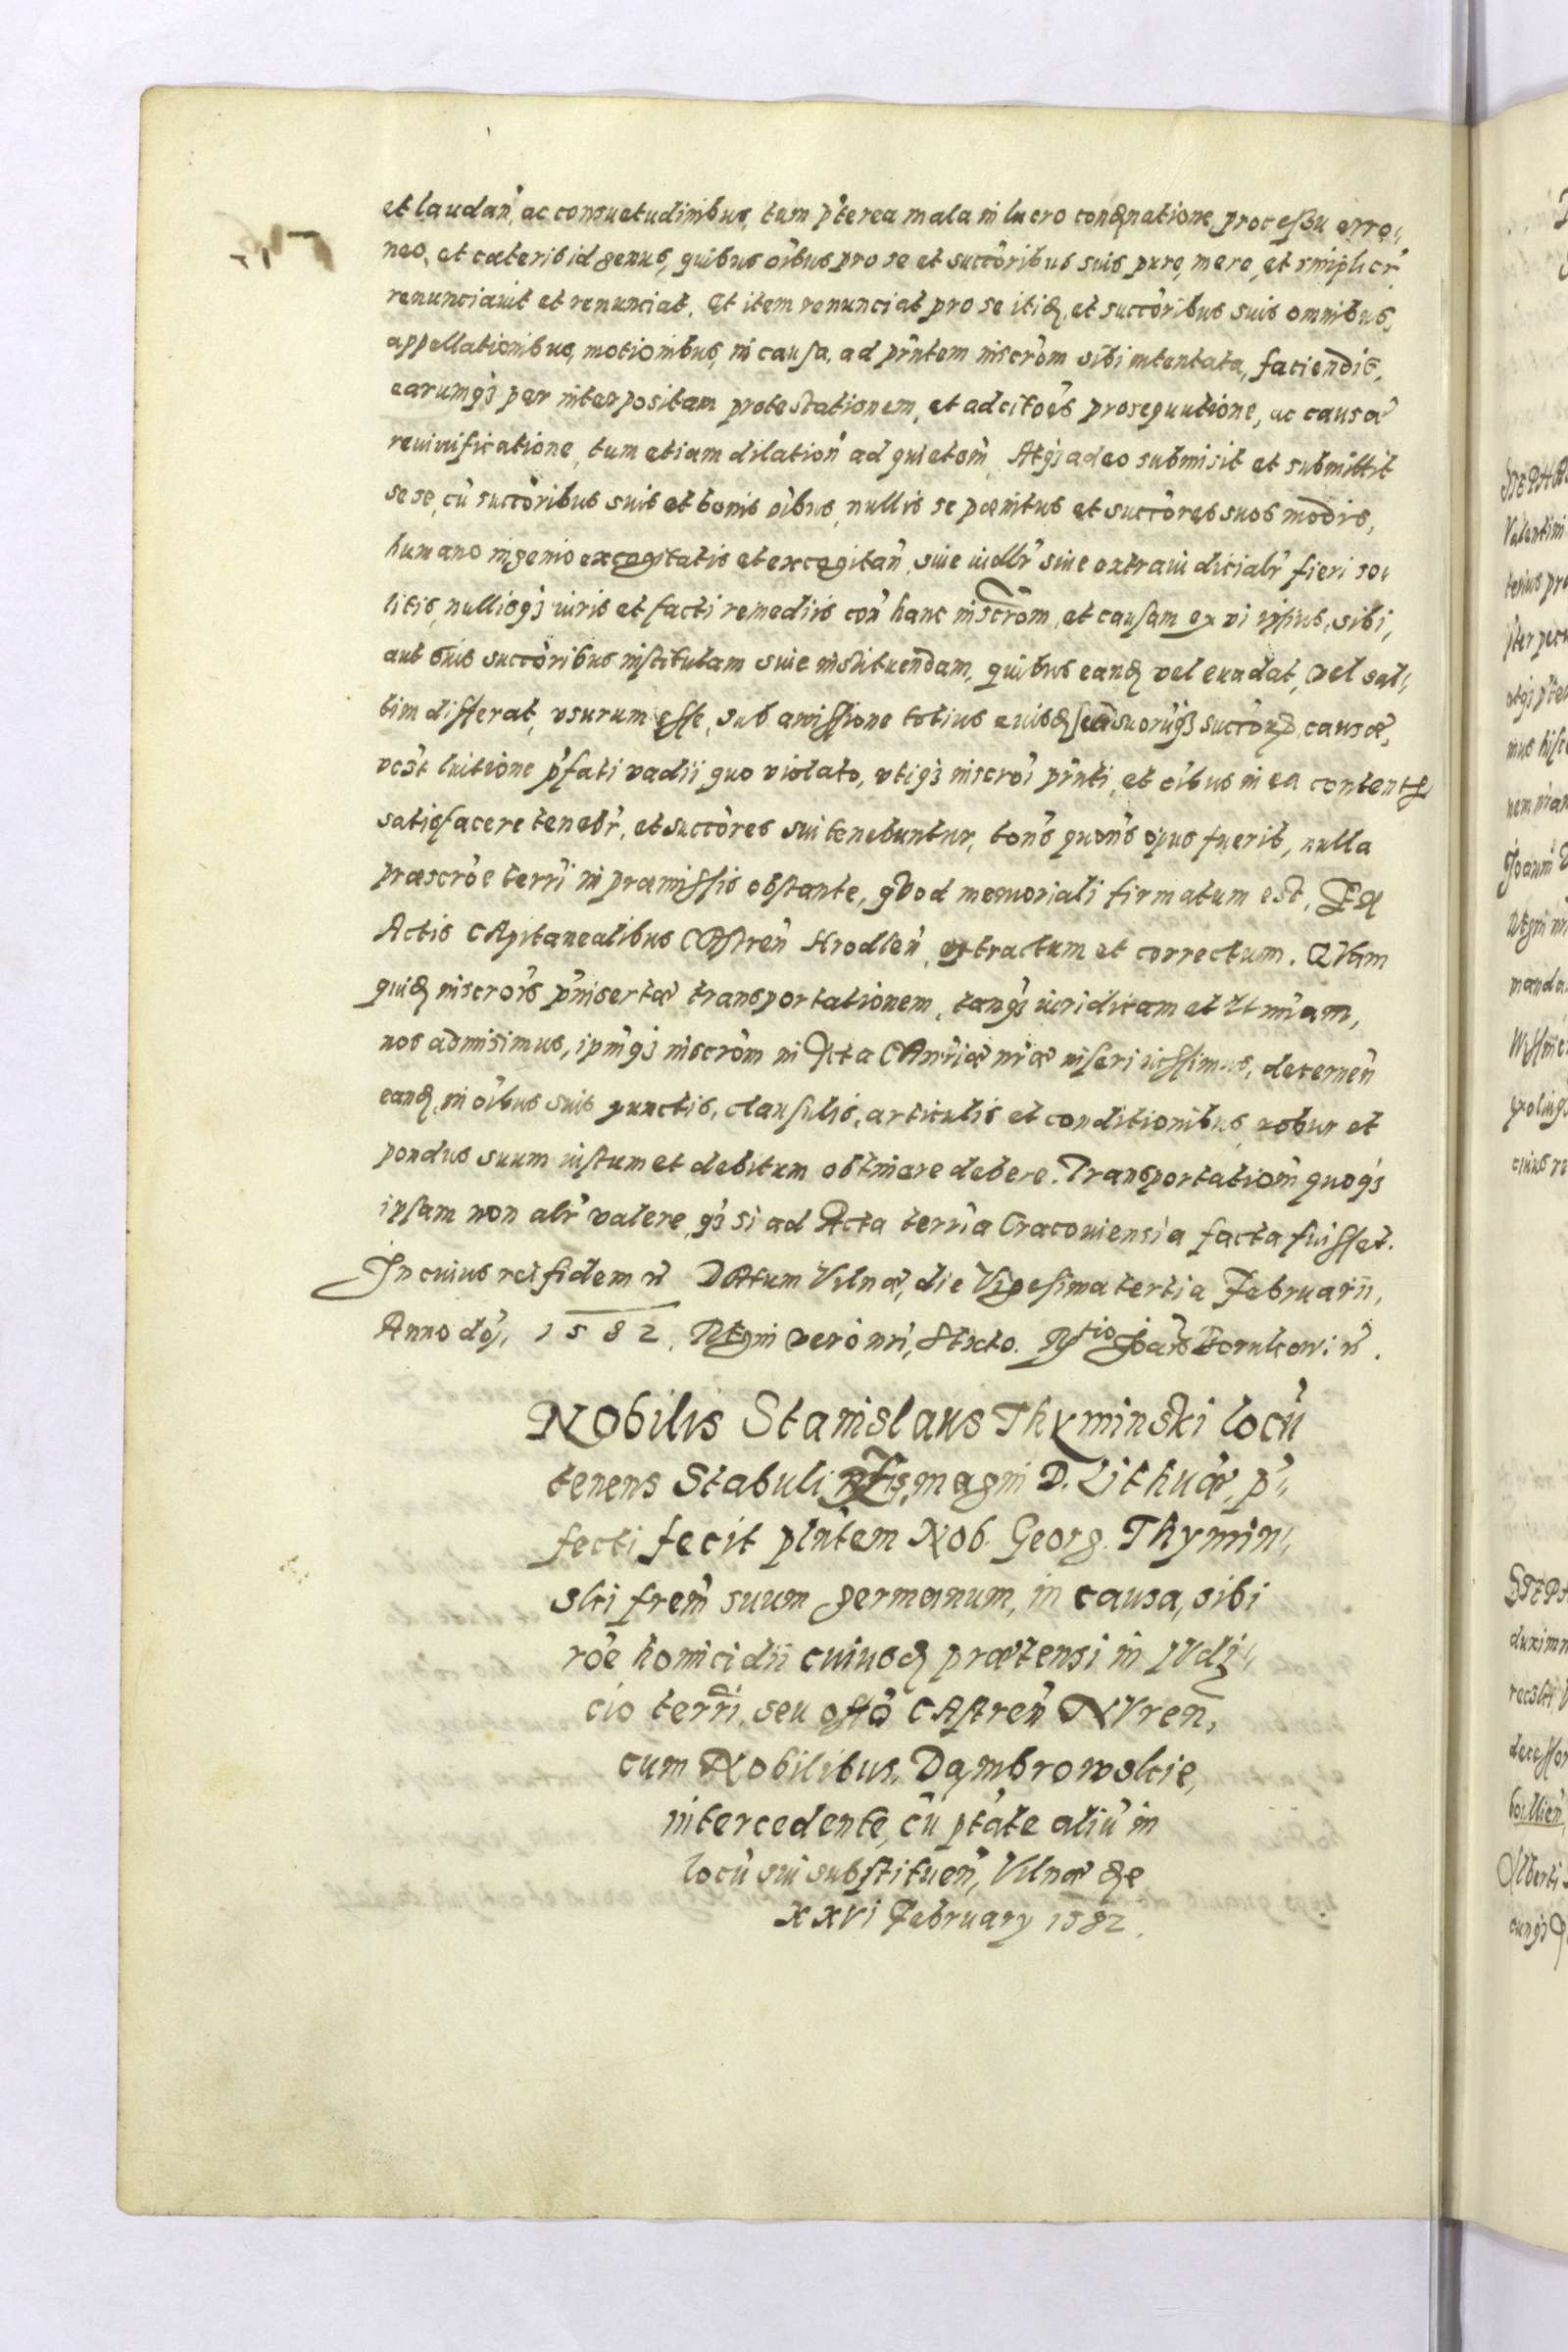 et laudan̄, ac consuetudinibus, tum p̄terea mala in lucro condemnatione, processu erro⸗
neo, et cæteris id genus, quibus oībus pro se et succōribus suis pure, mere, et simplicr̄
renunciavit et renunciat. Et item renunciat pro se itidem, et succōribus suis omnibus,
appellationibus, motionibus, in causa, ad pn̄tem inscrōm sibi intentata, faciendis,
earumq3 per interpositam protestationem, et ad citōes prosequutione, ac causæ
revivificatione, tum etiam dilation̄ ad quietōm̄. Atq3 adeo submisit et submittit
se se, cū succōribus suis et bonis oībus, nullis se pænitus et succōres suos modis,
humano ingenio excogitatis et excogitan̄, sive iudlr̄ sive extraiudicialr̄ fieri so⸗
litis, nullisq3 iuris et facti remediis con̄ hanc inscrōm, et causam ex vi ipsius, sibi,
aut suis succōribus institutam sive instituendam, quibus eandem vel evadat, vel sal⸗
tim differat, usurum esse, sub amissione totius eiusdem suæ suorūq3 succōrum causæ,
post luitione p̄fati vadii, quo violato, utiq3 inscrōi pn̄ti, et oībus in ea contentis
satisfacere tenebr̄, et succōres sui tenebuntur, tōns quōns opus fuerit, nulla
præscrōe terrī in præmissis obstante, quod memoriali firmatum est. Ex
Actis CApitanealibus CAstren̄ Hrodlen̄, extractum et correctum. QVam
quidem inscrōis p̄insertæ transportationem, tanq3 iuridicam et ltīmam,
nos admisimus, ipm̄q3 inscrōm in Acta CAn̄riæ nr̄æ inseri iussimus, decernen̄
eandem, in oībus suis punctis, clausulis, articulis et conditionibus, robur et
pondus suum iustum et debitum obtinere debere. Transportationm̄ quoq3
ipsam non alr̄ valere, q3 si ad Acta terrīa Cracoviensia facta fuisset.
In cuius rei fidem n̄ DAtum Vilnæ, die Vigesima tertia Februarii,
Anno dōi, 1582, REgni vero nrī, SExto. Rtio Joān̄is Borukowi: n̄.
NObilis Stanislaus Thyminski locū
tenens Stabuli Rtis, magni D. Lithuæ, p̄⸗
fecti fecit pln̄tem Nob. Georg. Thymin⸗
ski frem̄ suum germanum, in causa, sibi
rōe homicidii cuiusdem prætensi in IVdi⸗
cio terrī, seu offō CAstren̄ NVren̄,
cum Nobilibus, Dąmbrowskie,
intercedente, cū ptāte aliū in
locū sui substituen̄, Vilnæ de
XXVI February 1582.